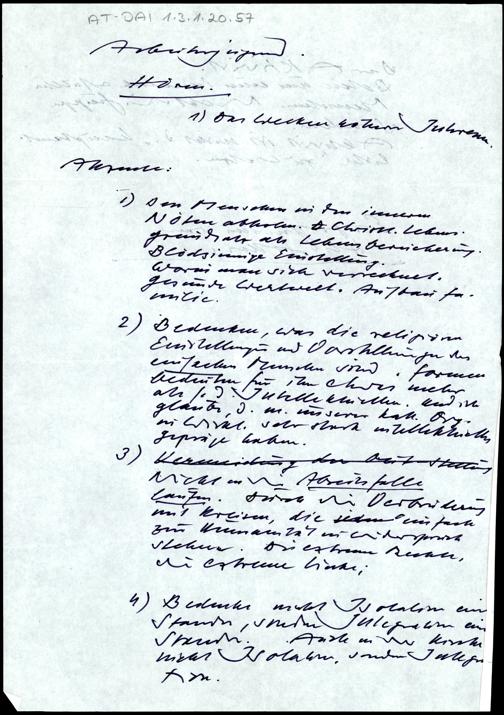 AT-DAI 1.3.1.20.57
Arbeiterjugend.
Hören.
1) Das Wecken höherer Interessen.
Akzente:
1) Den Menschen in den inneren
Nöten abholen. D. Christl. Lebens-
grundsatz als Lebensbereicherung.
Blödsinnige Einstellung.
Woran man sich verrechnet.
gesunde Wertwelt. Aufbau fa-
milie.
2) Bedenken, was die religiösen
Einstellungen und Vorstellungen des
einfachen Menschen sind. Formen
bedeuten für ihn etwas mehr
als f. d. Intellektuellen. Und ich
glaube, d. w. unseren kath. Org.
in Wirkl. sehr stark intellektuelles
gepräge haben.
3) Vermeidung der
Nicht in die Abseitsfalle
laufen. Durch die Verbrüderung
mit Kreisen, die einfach
zur Humanität in Widerspruch
stehen. Die extreme Rechte,
die extreme Linke;
4) Bedenke nicht Isolation ein
Standes, sondern Integration ein
Standes. Auch in der Kirche
nicht Isolation, sondern Integra-
tion.